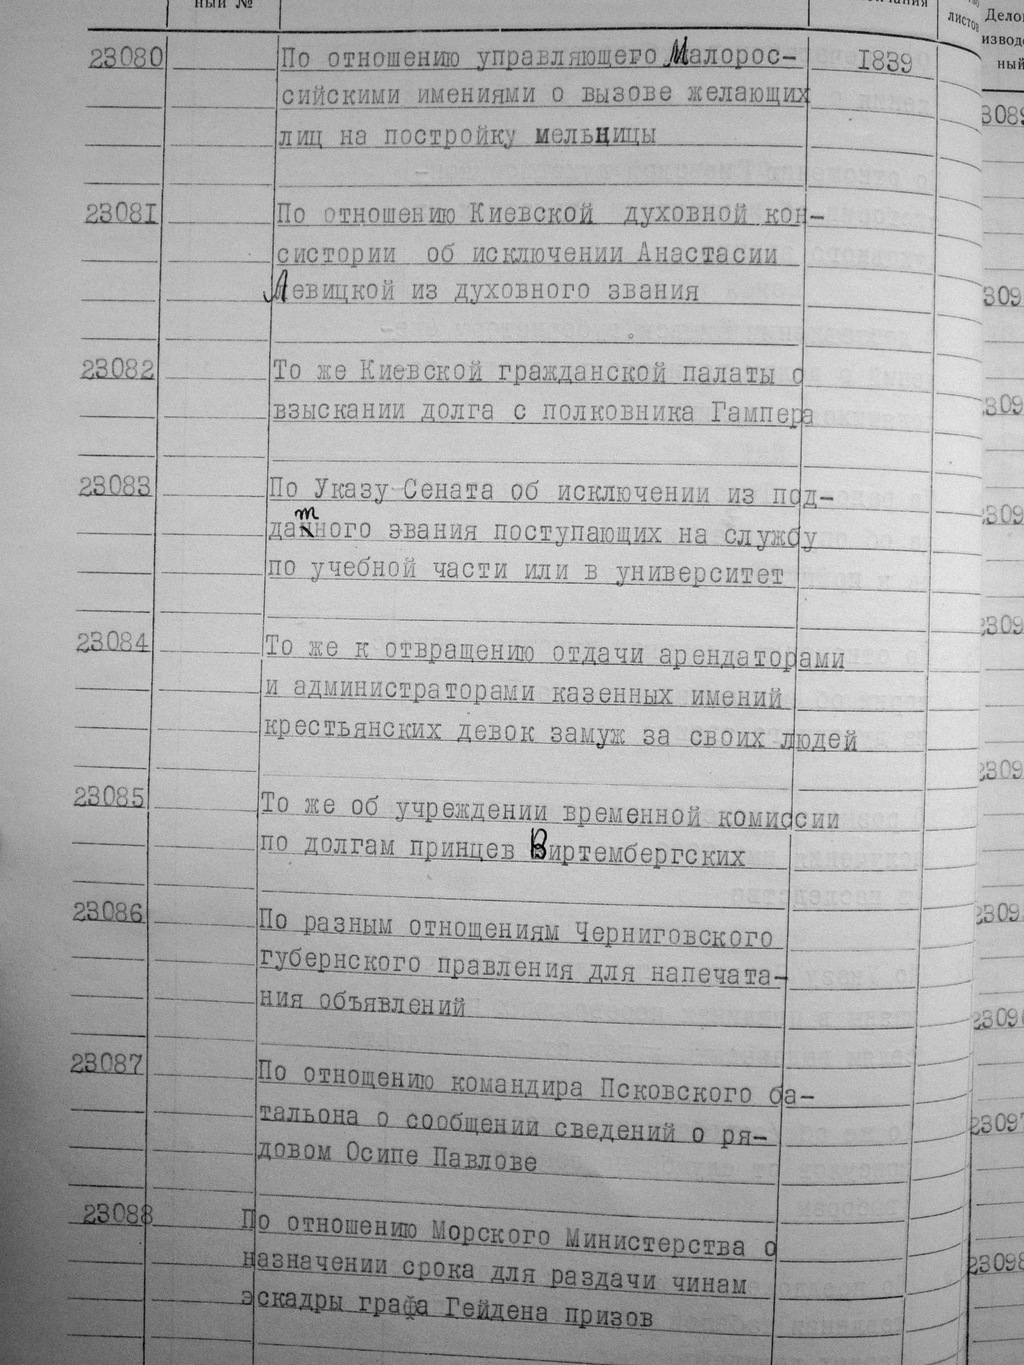 ный №
листов
Дело
ный
23080 По отношению управляющего Малорос- 1839
сийскими имениями о вызове желающих
лиц на постройку мельницы
23081 По отношению Киевской духовной кон-
систории об исключении Анастасии
Левицкой из духовного звания
23082 То же Киевской гражданской палаты о
взыскании долга с полковника Гампера
23083 По Указу Сената об исключении из под-
датного звания поступающих на службу
по учебной части или в университет
23084 То же к отвращению отдачи арендаторами
и администраторами казенных имений
крестьянских девок замуж за своих людей
23085 То же об учреждении временной комиссии
по долгам принцев Виртембергских
23086 По разным отношениям Черниговского
губернского правления для напечата-
ния объявлений
23087 По отнощению командира Псковского ба-
тальона о сообщении сведений о ря-
довом Осипе Павлове
23088 По отношению Морского Министерства о
назначении срока для раздачи чинам
эскадры графа Гейдена призов